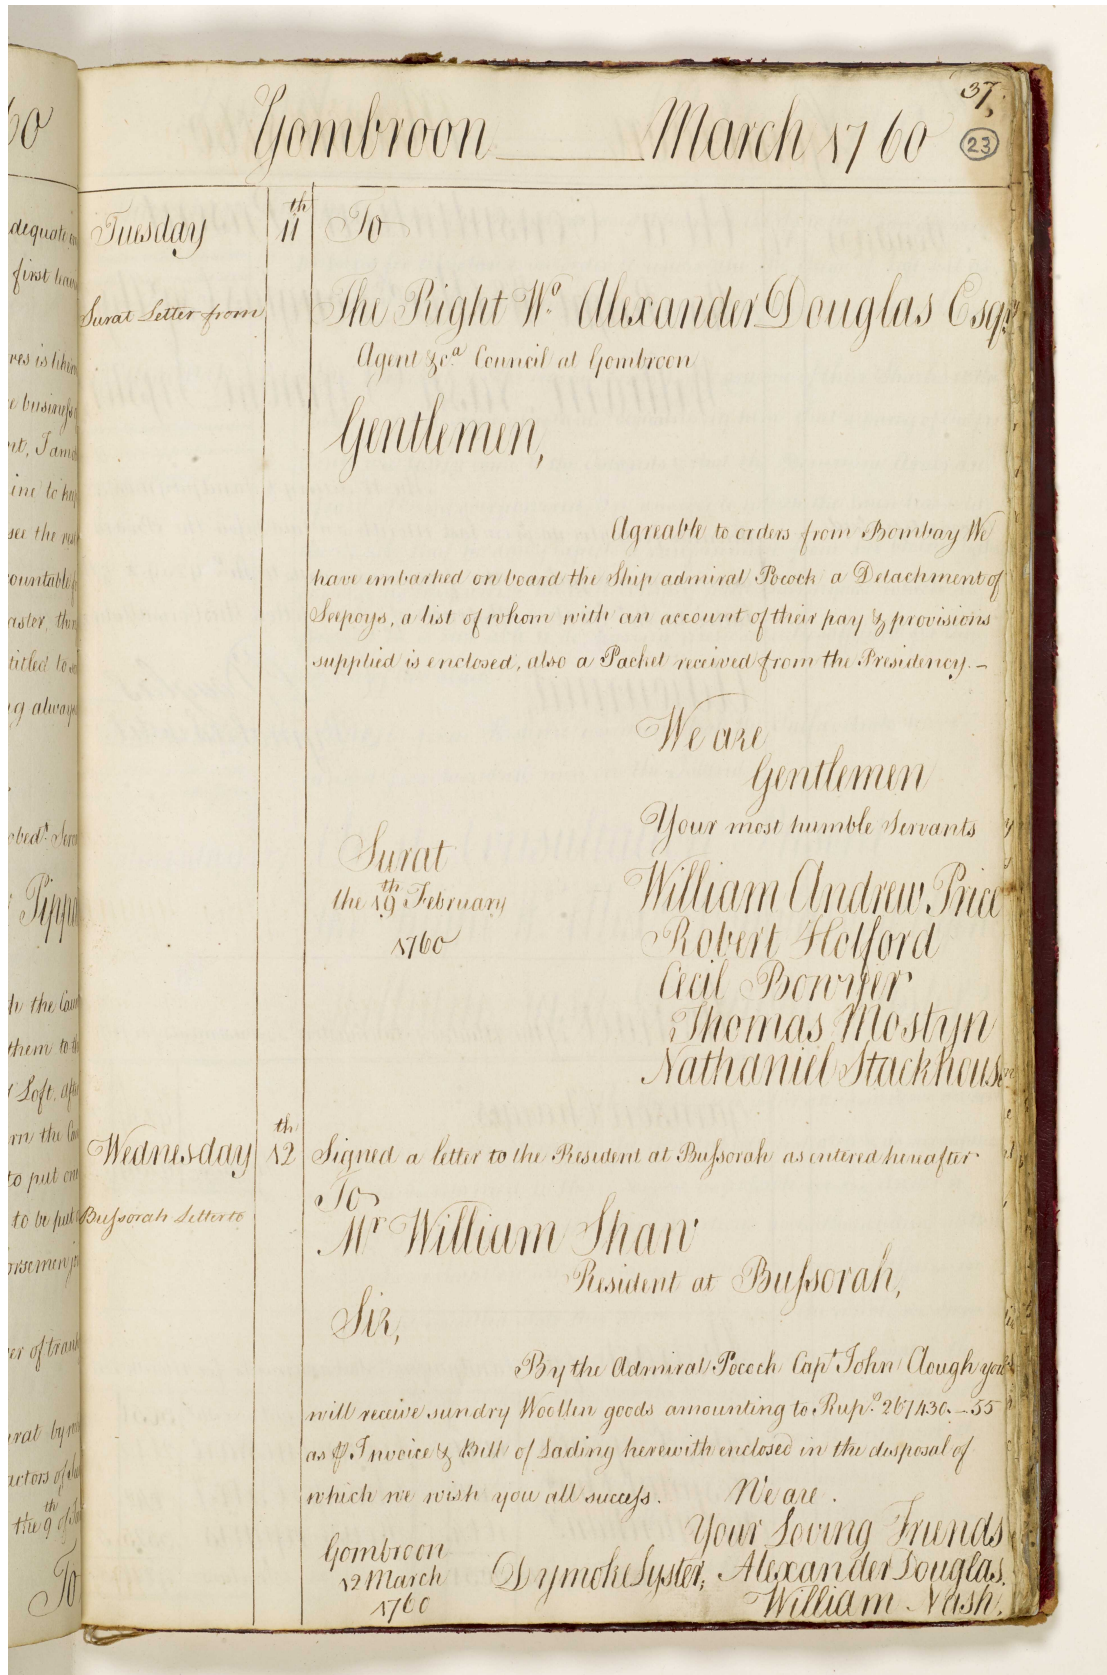 37.
Gombroon March 1760
23
Tuesday 11th To
Surat Letter from The Right Wo. Alexander Douglas Esqr.
Agent &ca. Council at Gombroon
Gentlemen,
Agreable to orders from Bombay We
have embarked on board the Ship admiral Pocock a Detachment of
Seepoys, a list of whom with an account of their pay & provisions
supplied is enclosed, also a Packet received from the Presidency. –
We are
Gentlemen
Your most humble Servants
Surat
the 19th February
1760
William Andrew Price
Robert Holford
Cecil Bowyer
Thomas Mostyn
Nathaniel Stackhouse
Wednesday 12th Signed a letter to the Resident at Bussorah as entered hereafter
To
Bussorah Letter to
Mr William Shaw
Resident at Bussorah,
Sir,
By the Admiral Pocock Capt John Clough you
will receive sundry Woollen goods amounting to Rups. 267430. – 55
as ⅌ Invoice & Bill of Lading herewith enclosed in the disposal of
which we wish you all success. We are.
Your Loving Friends
Gombroon
12 March
1760
Dymoke Lyster, Alexander Douglas.
William Nash.